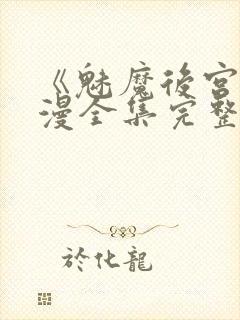 《魅魔後宮
漫全集完整
於化龍